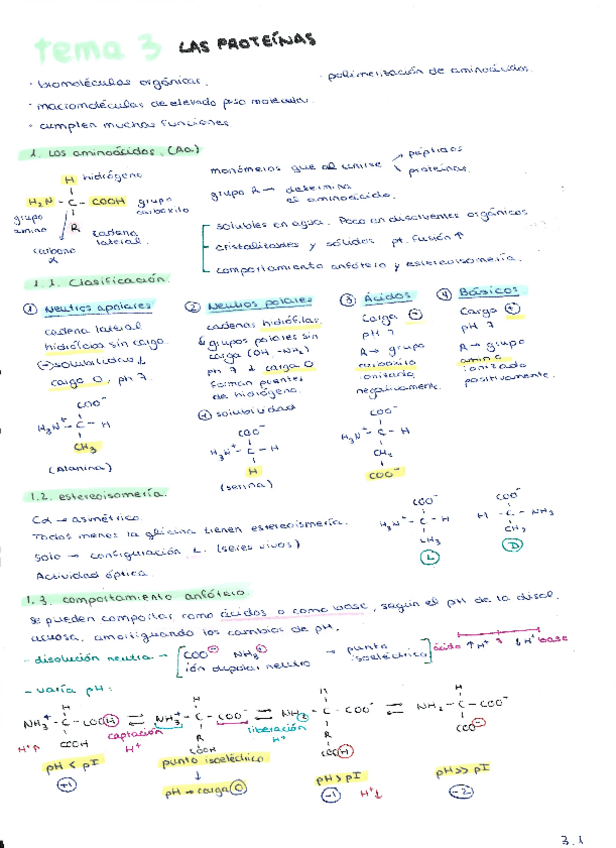 tema 3 LAS PROTEÍNAS
· biomoléculas orgánicas. · polimerización de aminoácidos.
· macromoléculas de elevado peso molecular.
· cumplen muchas funciones
1. Los aminoácidos. (Aa)
H hidrógeno
H₂N - C - COOH grupo carboxilo
grupo amino
R cadena lateral.
carbono α
monómeros que al unirse péptidos
proteínas.
grupo R → determina el aminoácido.
solubles en agua. Poco en disolventes orgánicos
cristalizables y sólidos pt. fusión ↑
comportamiento anfótero y estereoisomería.
1.1. Clasificación.
① Neutros apolares
cadena lateral
hidrófoba sin carga.
⊖ solubilidad ↓
carga 0, pH 7.
COO⁻
H₃N⁺ - C - H
CH₃
(Alanina)
② Neutros polares
cadenas hidrófilas.
grupos polares sin
carga (OH, -NH₂)
pH 7 carga 0
forman puentes
de hidrógeno.
⊕ solubilidad
COO⁻
H₃N⁺ - C - H
H
(serina)
③ Ácidos
carga ⊕
pH 7
R → grupo
carboxilo
ionizado
negativamente.
COO⁻
H₃N⁺ - C - H
CH₂
COO⁻
④ Básicos
Carga ⊕
pH 7
R → grupo
amino
ionizado
positivamente.
1.2. estereoisomería.
Cα → asimétrico.
Todos menos la glicina tienen estereoisomería.
Solo → configuración L. (seres vivos)
Actividad óptica.
COO⁻
H₃N⁺ - C - H
CH₃
L
COO⁻
H - C - NH₃
CH₃
D
1.3. comportamiento anfótero.
Se pueden comportar como ácidos o como base, según el pH de la disol.
acuosa, amortiguando los cambios de pH.
- disolución neutra → COO⁻ NH₃⁺ → punto isoeléctrico ácido ↑H⁺ ↓H⁺ base
ión dipolar neutro
- varía pH:
H H H H
NH₃⁺ - C - COOH ⇌ NH₃⁺ - C - COO⁻ ⇌ NH₂ - C - COO⁻ ⇌ NH₂ - C - COO⁻
H⁺↑ COOH captación H⁺ R liberación H⁺ R COO⁻
COOH COOH
pH < pI punto isoeléctrico pH > pI pH >> pI
+1 pH → carga 0 -1 H⁺↓ -2
3.1